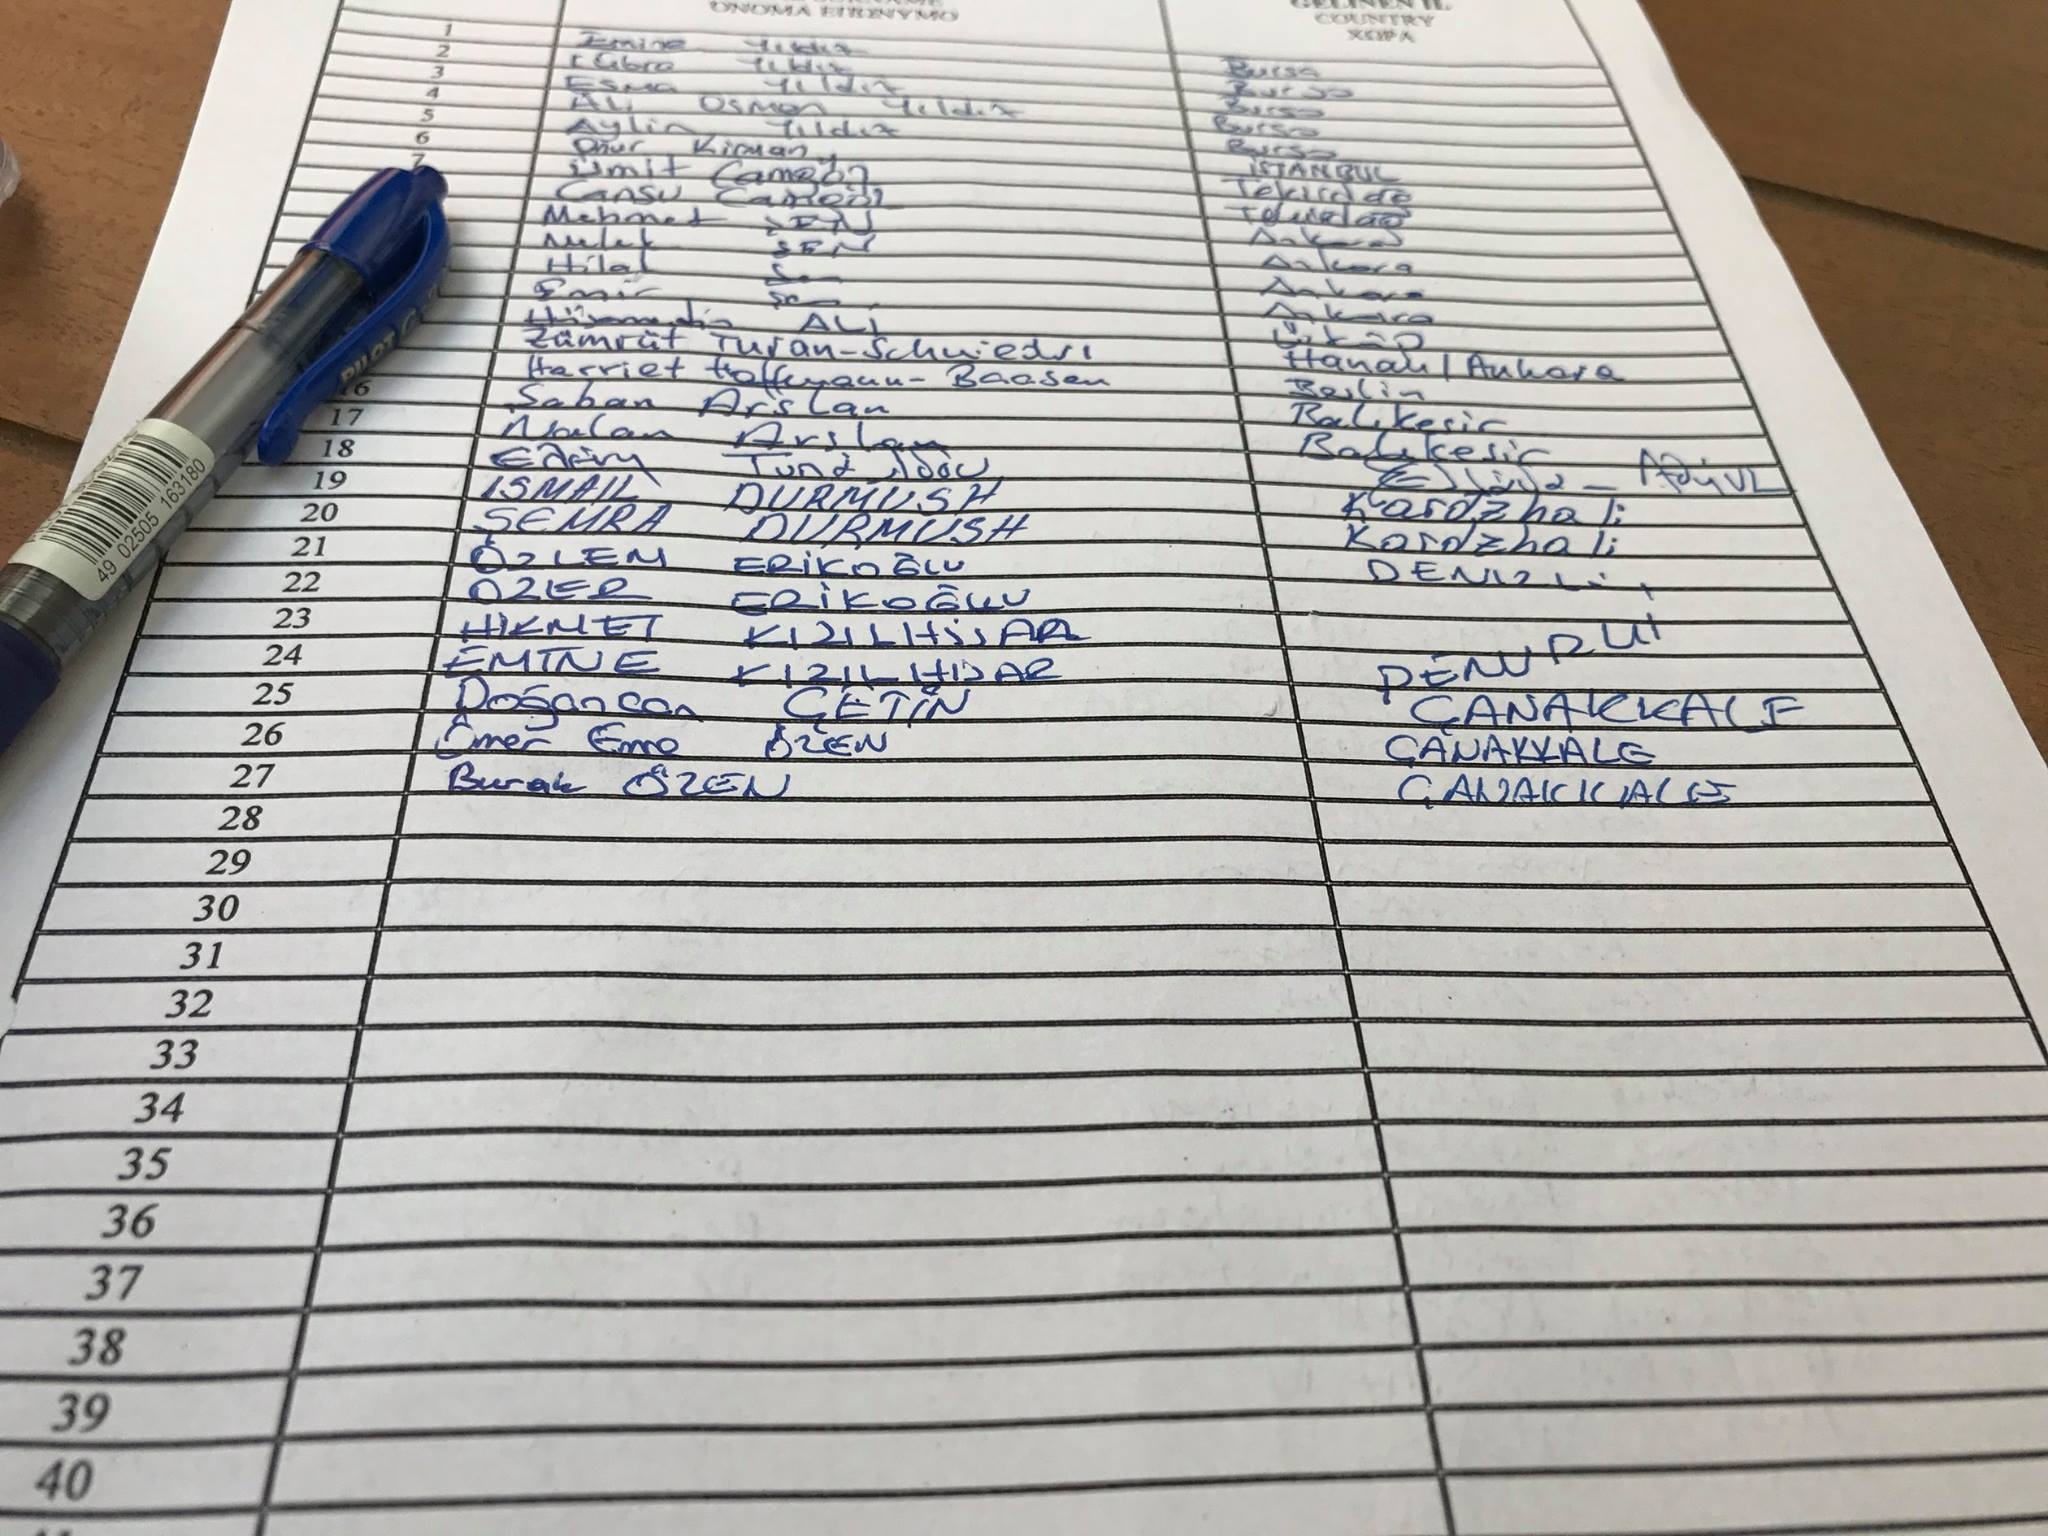 ONOMA EIIONYMO
GELİNEN İL
COUNTRY
XΩPA
1 Emine Yıldız Bursa
2 Kübra Yıldız Bursa
3 Esma Yıldız Bursa
4 Ali Osman Yıldız Bursa
5 Aylin Yıldız Bursa
6 Onur Kirman İSTANBUL
7 Ümit Tekirdağ
Cansu Tekirdağ
Mehmet ŞEN Ankara
Melek ŞEN Ankara
Hilal Şen Ankara
Emir Şen Ankara
ALİ
Zümrüt Turan-Schnieders Hanau/Ankara
Harriet Hoffmann-Baasen Berlin
16 Şaban Arslan Balıkesir
17 Nalan Arslan Balıkesir
18
19 ISMAIL DURMUSH Kardzhali
20 SEMRA DURMUSH Kardzhali
21 ÖZLEM ERİKOĞLU DENİZLİ
22 ÖZER ERİKOĞLU
23 HİKMET KIZILHİSAR
24 EMİNE KIZILHİSAR
25 Doğancan ÇETİN ÇANAKKALE
26 Ömer Emre ÖZEN ÇANAKKALE
27 Burak ÖZEN ÇANAKKALE
28
29
30
31
32
33
34
35
36
37
38
39
40
PILOT
49 02505 163180